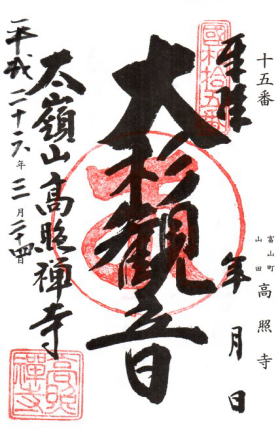 十五番
富山町
山田
高照寺
奉拝
年月日
國札拾五番
大杉観音
太嶺山高照禅寺
平成二十六年三月二十四日
高照禅寺